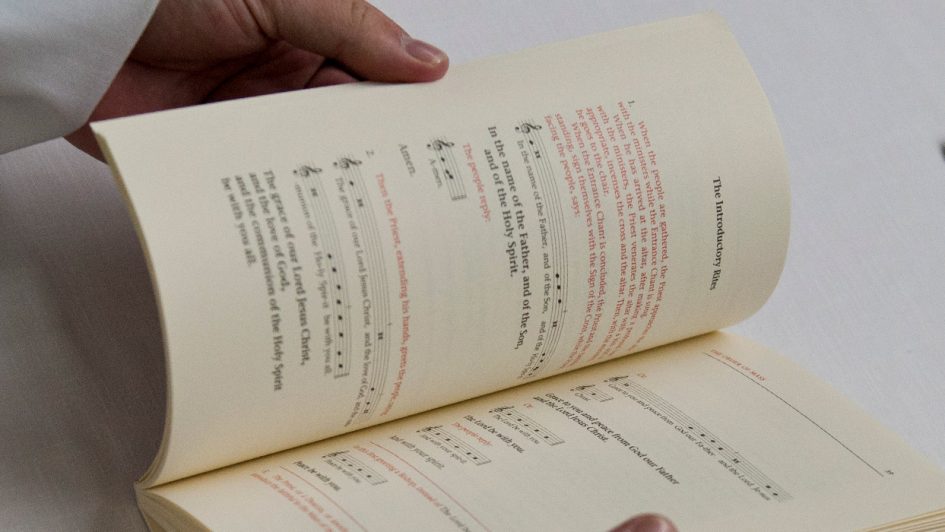 The Introductory Rites
1. When the people are gathered, the Priest
with the ministers while the Entrance Chant is sung.
When he has arrived at the altar, after making
with the ministers, the Priest venerates the altar with a
appropriate, incenses the cross and the altar. Then, with the
he goes to the chair.
When the Entrance Chant is concluded, the Priest and
standing, sign themselves with the Sign of the Cross, while
facing the people, says:
In the name of the Father, and of the Son, and of the Holy
In the name of the Father, and of the Son,
and of the Holy Spirit.
The people reply:
A-men.
Amen.
2. Then the Priest, extending his hands, greets the people,
The grace of our Lord Jesus Christ, and the love of God, and the
munion of the Ho-ly Spir-it be with you all.
The grace of our Lord Jesus Christ,
and the love of God,
and the communion of the Holy Spirit
be with you all.
THE ORDER OF MASS
Or:
Grace to you and peace from God our Fa-ther and the Lord Jesus
Christ.
Grace to you and peace from God our Father
and the Lord Jesus Christ.
Or:
The Lord be with you.
The Lord be with you.
The people reply:
And with your spir-it.
And with your spirit.
In this first greeting a Bishop, instead of The Lord be
Peace be with you.
Peace be with you.
3. The Priest, or a Deacon, or another